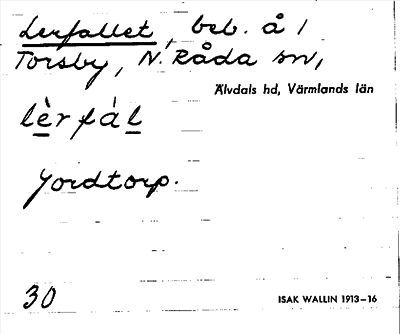 Lerfallet, beb. å 1
Torsby, N. Råda sn,
Älvdals hd, Värmlands län
lè̱r fàḻ
Jordtorp.
30
ISAK WALLIN 1913–16